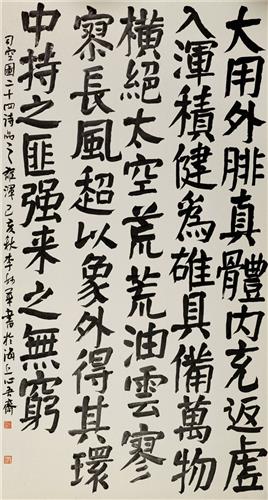 大用外腓真體內充返虛
入渾積健為雄具備萬物
橫絕太空荒荒油雲寥
寥長風超以象外得其環
中持之匪强来之無窮
司空圖二十四詩品之雄渾己亥秋李華書於海上心吾齋